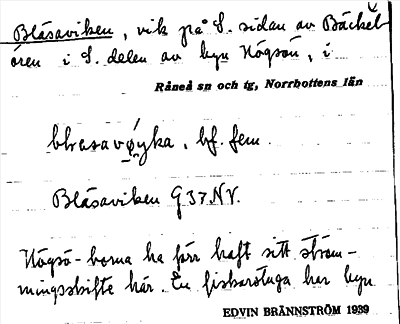 Blåsaviken, vik på S. sidan av Bäckel
ören i S. delen av byn Högsön, i
Råneå sn och tg, Norrbottens län
bf. fem.
Blåsaviken G 37 NV.
Högsö-borna ha förr haft sitt ström-
mingsskifte här. En fiskarstuga har byn
EDVIN BRÄNNSTRÖM 1939